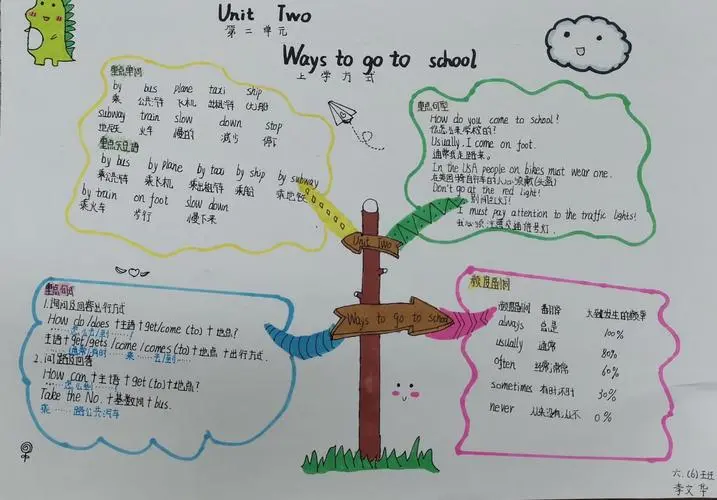 Unit Two
第二单元
Ways to go to school
上学方式
重点单词
by bus plane taxi ship
乘 公共汽车 飞机 出租车 (大)船
subway train slow down stop
地铁 火车 慢的 减少 停下
重点短语
by bus by plane by taxi by ship by subway
乘公共汽车 乘飞机 乘出租车 乘船 乘地铁
by train on foot slow down
乘火车 步行 慢下来
重点句型
How do you come to school?
你怎么来学校的?
Usually, I come on foot.
通常我走路来。
In the USA people on bikes must wear one.
在美国骑自行车的人必须戴(头盔)
Don't go at the red light!
别闯红灯!
I must pay attention to the traffic lights!
我必须注意交通信号灯.
Unit Two
Ways to go to school
重点句式
1.询问及回答出行方式
How do/does+主语+get/come (to)+地点?
……怎么去/到……?
主语+get/gets/come/comes(to)+地点+出行方式.
……通常/有时……乘……去/到……
2.问路及回答
How can+主语+get(to)+地点?
……怎么到……?
Take the No.+基数词+bus.
乘……路公共汽车
频度副词
频度副词 翻译 大致发生的频率
always 总是 100%
usually 通常 80%
often 经常,常常 60%
sometimes 有时,不时 30%
never 从来没有,从不 0%
六.(6)王任
李文华